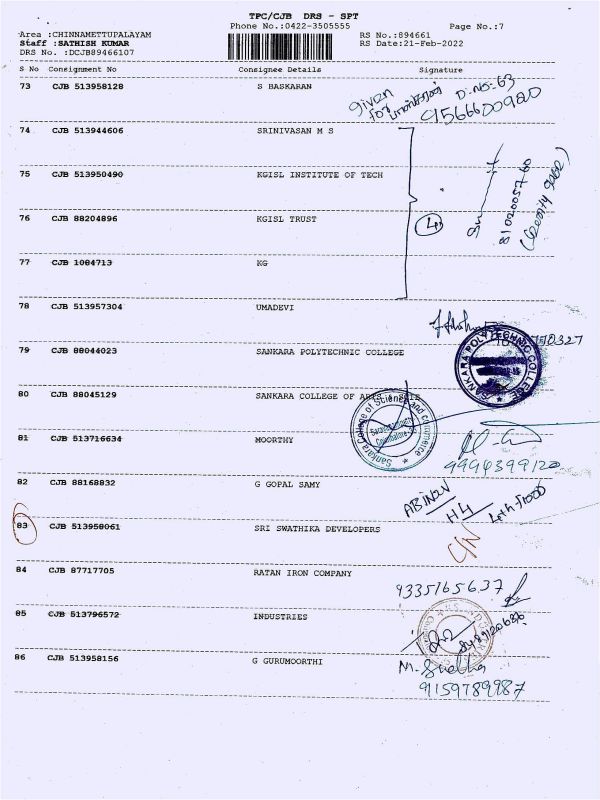 TPC/CJB DRS - SPT
Phone No.:0422-3505555 Page No.:7
Area :CHINNAMETTUPALAYAM RS No.:894661
Staff :SATHISH KUMAR RS Date:21-Feb-2022
DRS No. :DCJB89466107
S No Consignment No Consignee Details Signature
73 CJB 513958128 S BASKARAN
given D.NO:-63
for
9566600980
74 CJB 513944606 SRINIVASAN M S
75 CJB 513950490 KGISL INSTITUTE OF TECH
76 CJB 88204896 KGISL TRUST
4
77 CJB 1084713 KG
78 CJB 513957304 UMADEVI
79 CJB 88044023 SANKARA POLYTECHNIC COLLEGE
SANKARA POLYTECHNIC COLLEGE
80 CJB 88045129 SANKARA COLLEGE OF ARTS & SCIE
Sankara College of Science and commerce
81 CJB 513716634 MOORTHY
9994399120
82 CJB 88168832 G GOPAL SAMY
ABINOV
H4 4th floor
83 CJB 513958061 SRI SWATHIKA DEVELOPERS
C/N
84 CJB 87717705 RATAN IRON COMPANY
9335165637
85 CJB 513796572 INDUSTRIES
86 CJB 513958156 G GURUMOORTHI
M. Sneha
9159789987